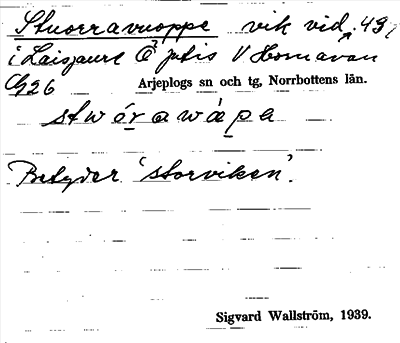 Stuorravuoppe vik vid 43,
i Laisjaure Ö jutis V Hornavan
G26 Arjeplogs sn och tg, Norrbottens län.
stwórawápe
Betyder 'storviken'.
Sigvard Wallström, 1939.